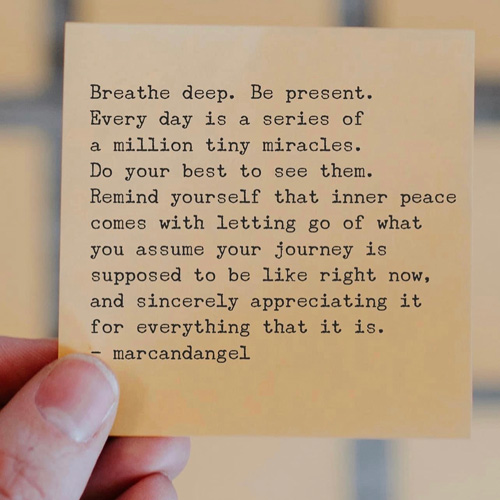 Breathe deep. Be present.
Every day is a series of
a million tiny miracles.
Do your best to see them.
Remind yourself that inner peace
comes with letting go of what
you assume your journey is
supposed to be like right now,
and sincerely appreciating it
for everything that it is.
- marcandangel